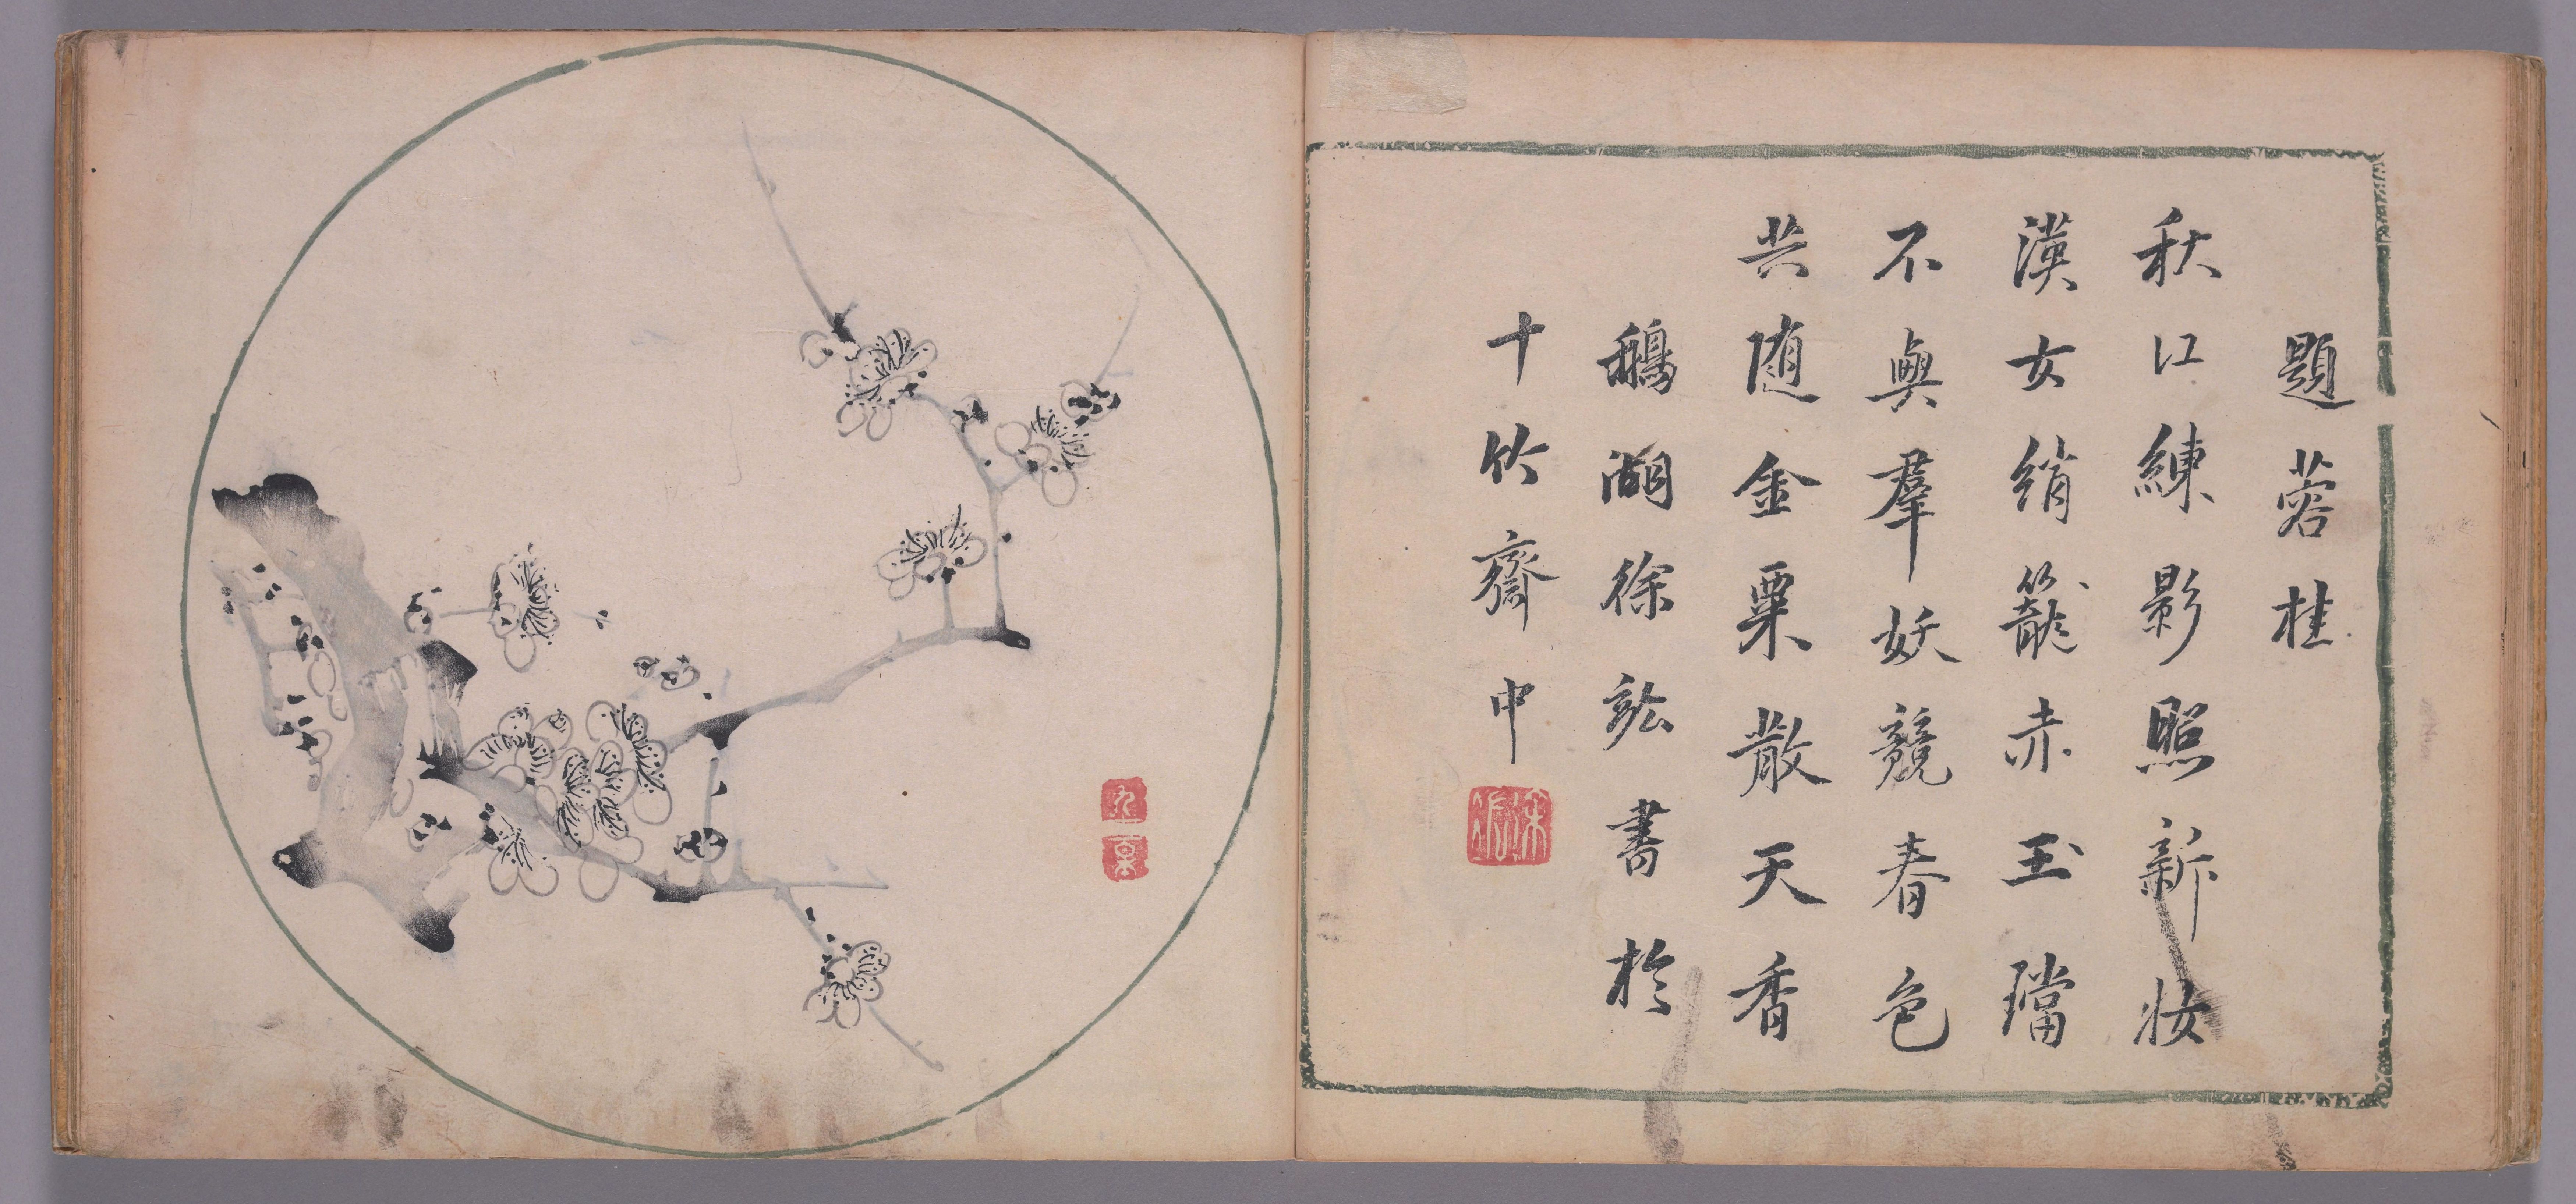 題蓉桂
秋江練影照新妝
漢女綃籠赤玉璫
不與羣妖競春色
共随金粟散天香
鵝湖徐訟書於
十竹齋中